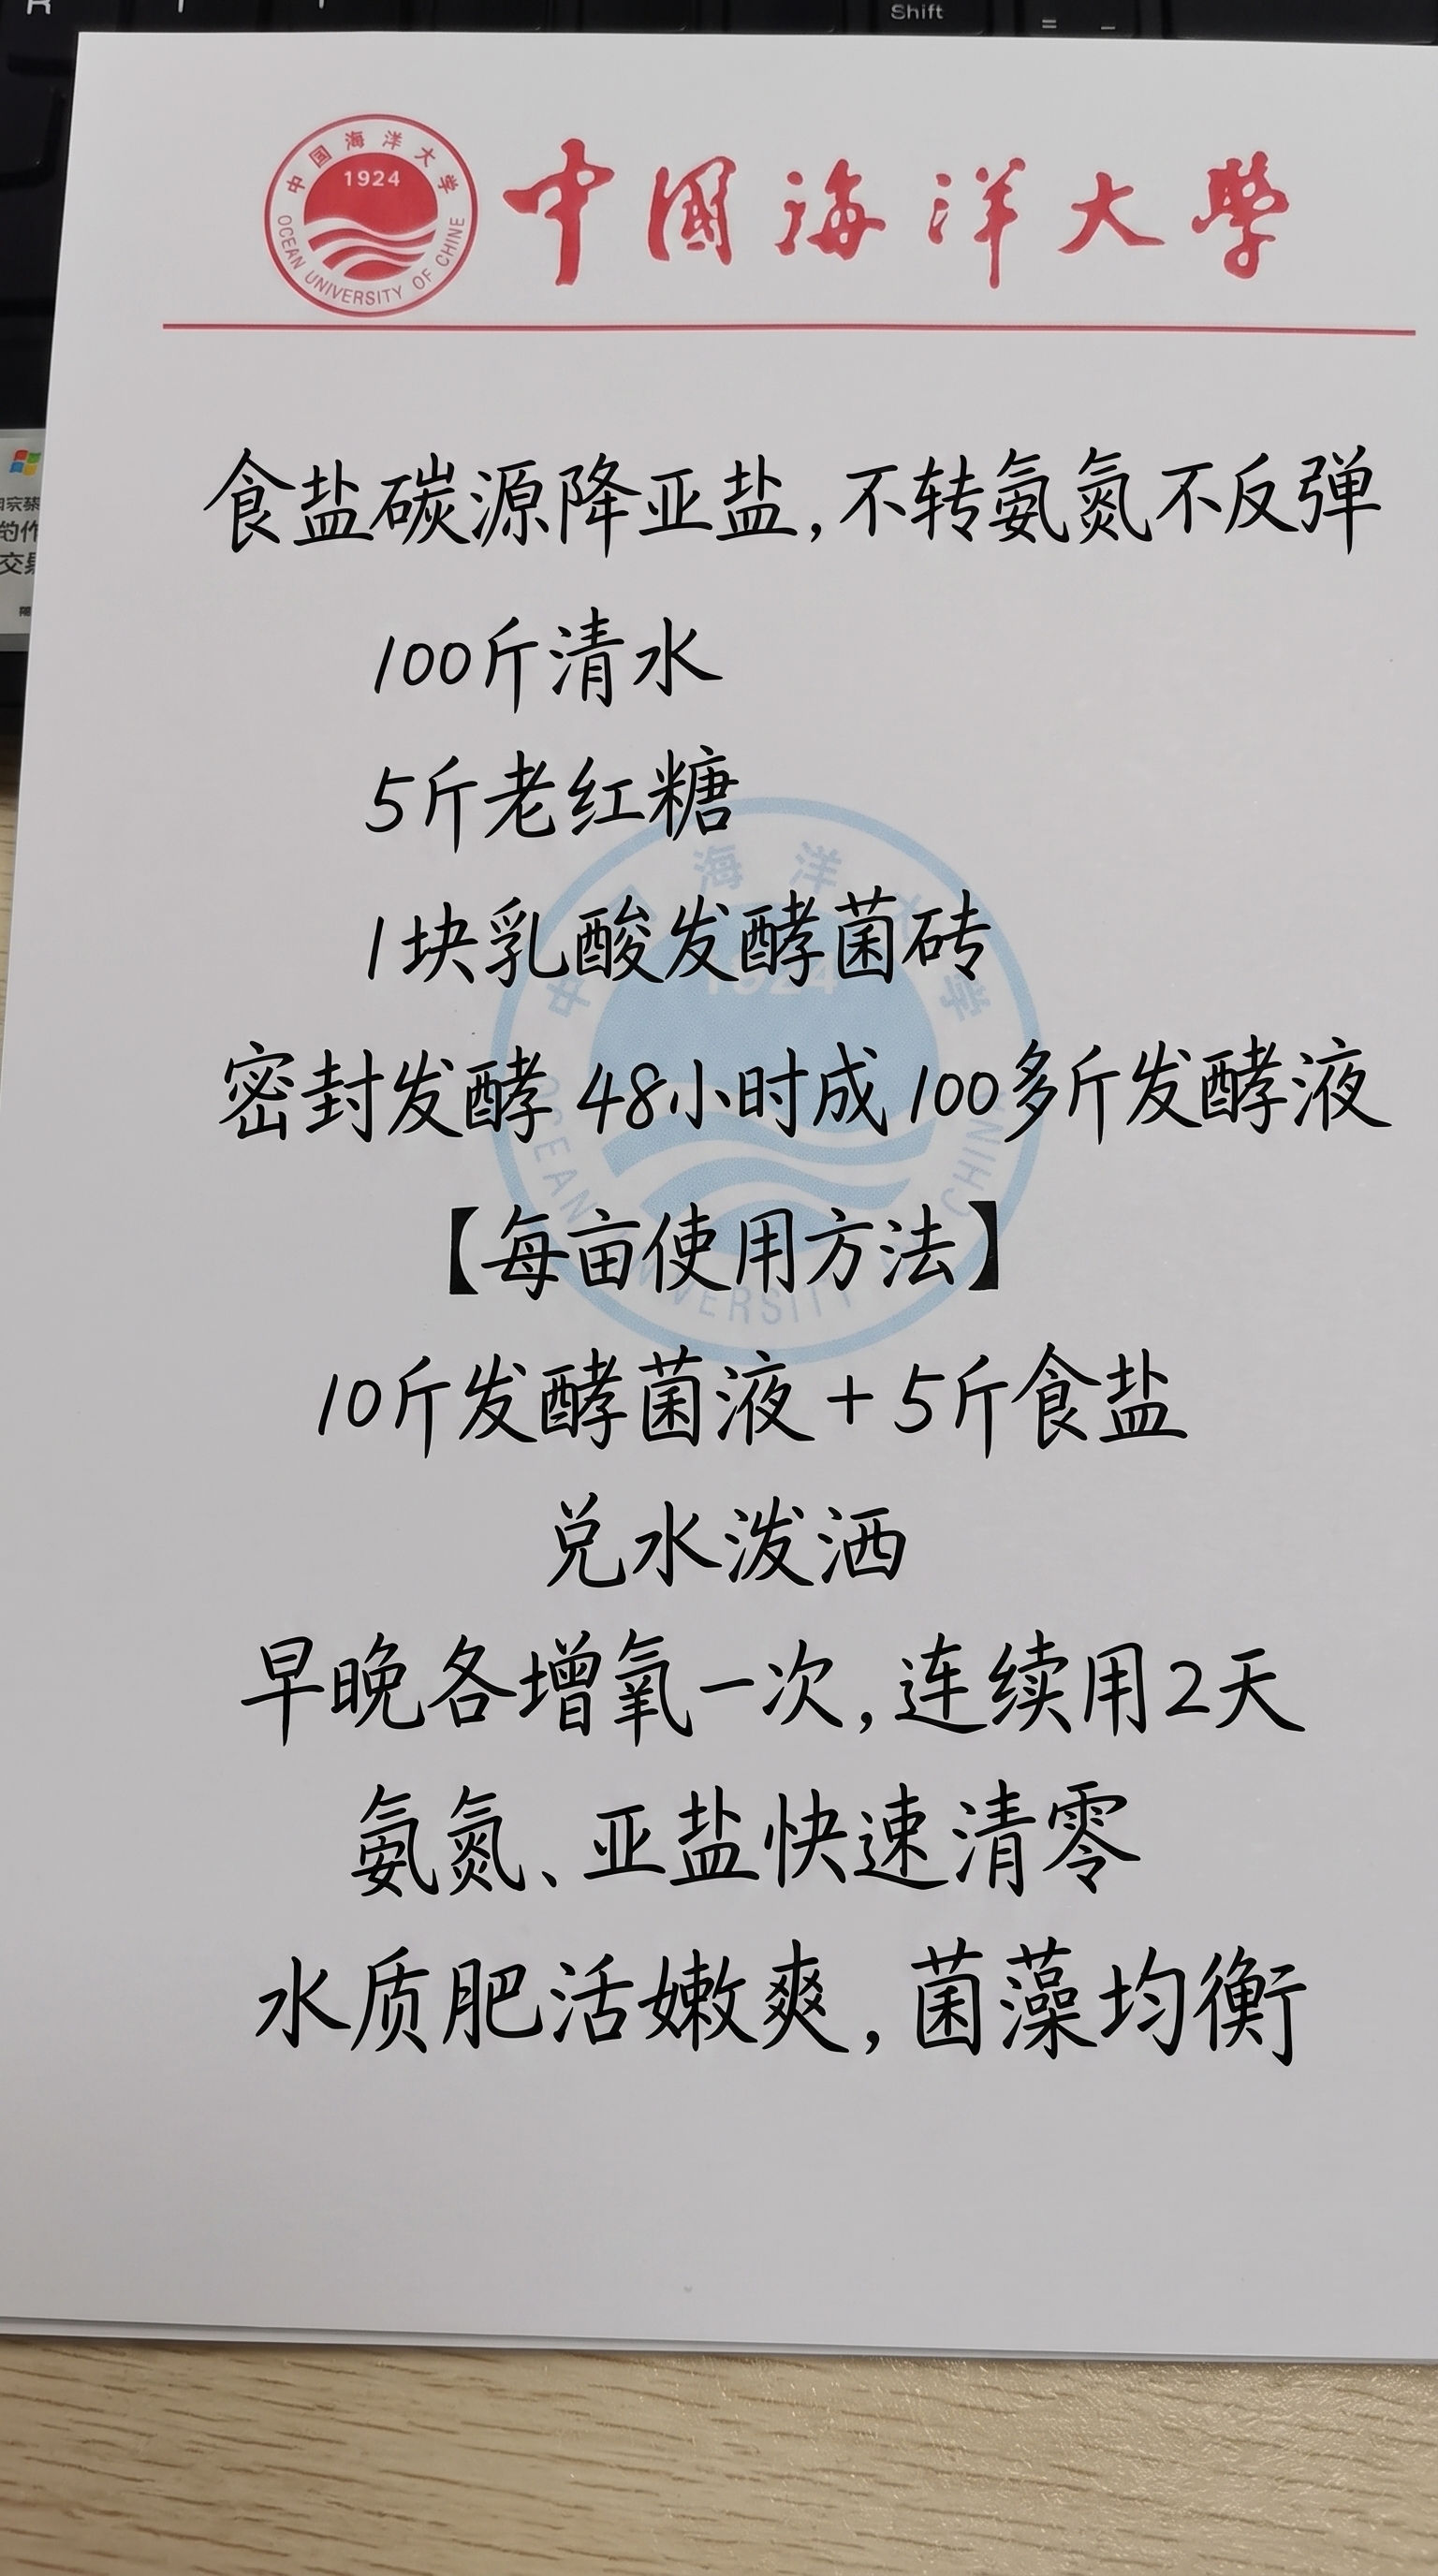 Shift
中国海洋大学
1924
OCEAN UNIVERSITY OF CHINE
中國海洋大學
食盐碳源降亚盐,不转氨氮不反弹
100斤清水
5斤老红糖
1块乳酸发酵菌砖
密封发酵48小时成100多斤发酵液
【每亩使用方法】
10斤发酵菌液+5斤食盐
兑水泼洒
早晚各增氧一次,连续用2天
氨氮、亚盐快速清零
水质肥活嫩爽,菌藻均衡